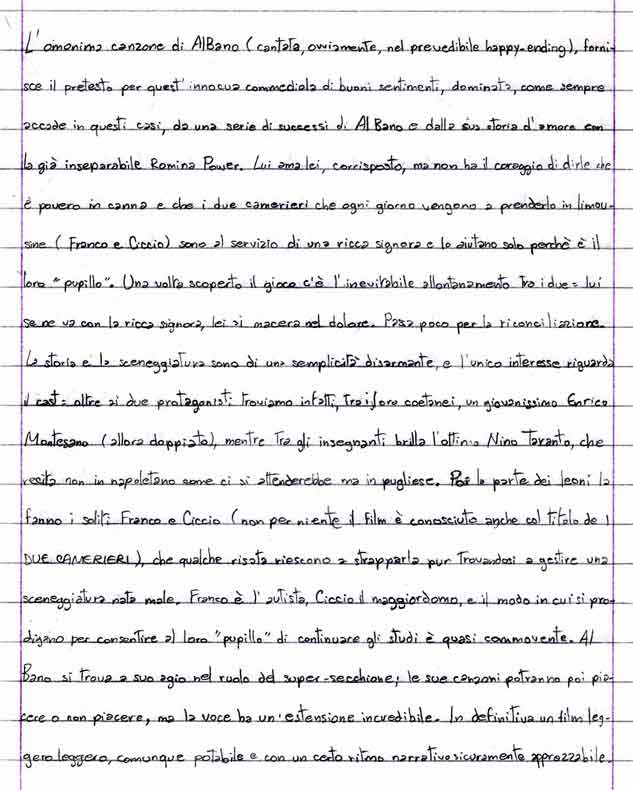 L'omonima canzone di AlBano (cantata, ovviamente, nel prevedibile happy-ending), forni-
sce il pretesto per quest'innocua commediola di buoni sentimenti, dominata, come sempre
accade in questi casi, da una serie di successi di Al Bano e dalla sua storia d'amore con
la già inseparabile Romina Power. Lui ama lei, corrisposto, ma non ha il coraggio di dirle che
è povero in canna e che i due camerieri che ogni giorno vengono a prenderlo in limou-
sine (Franco e Ciccio) sono al servizio di una ricca signora e lo aiutano solo perchè è il
loro "pupillo". Una volta scoperto il gioco c'è l'inevitabile allontanamento tra i due: lui
se ne va con la ricca signora, lei si macera nel dolore. Passa poco per la riconciliazione.
La storia e la sceneggiatura sono di una semplicità disarmante, e l'unico interesse riguarda
il cast: oltre ai due protagonisti troviamo infatti, tra i loro coetanei, un giovanissimo Enrico
Montesano (allora doppiato), mentre tra gli insegnanti brilla l'ottimo Nino Taranto, che
recita non in napoletano come ci si attenderebbe ma in pugliese. Poi la parte dei leoni la
fanno i soliti Franco e Ciccio (non per niente il film è conosciuto anche col titolo de I
DUE CAMERIERI), che qualche risata riescono a strapparla pur trovandosi a gestire una
sceneggiatura nata male. Franco è l'autista, Ciccio il maggiordomo, e il modo in cui si pro-
digano per consentire al loro "pupillo" di continuare gli studi è quasi commovente. Al
Bano si trova a suo agio nel ruolo del super-secchione; le sue canzoni potranno poi pia-
cere o non piacere, ma la voce ha un'estensione incredibile. In definitiva un film leg-
gero leggero, comunque potabile e con un certo ritmo narrativo sicuramente apprezzabile.